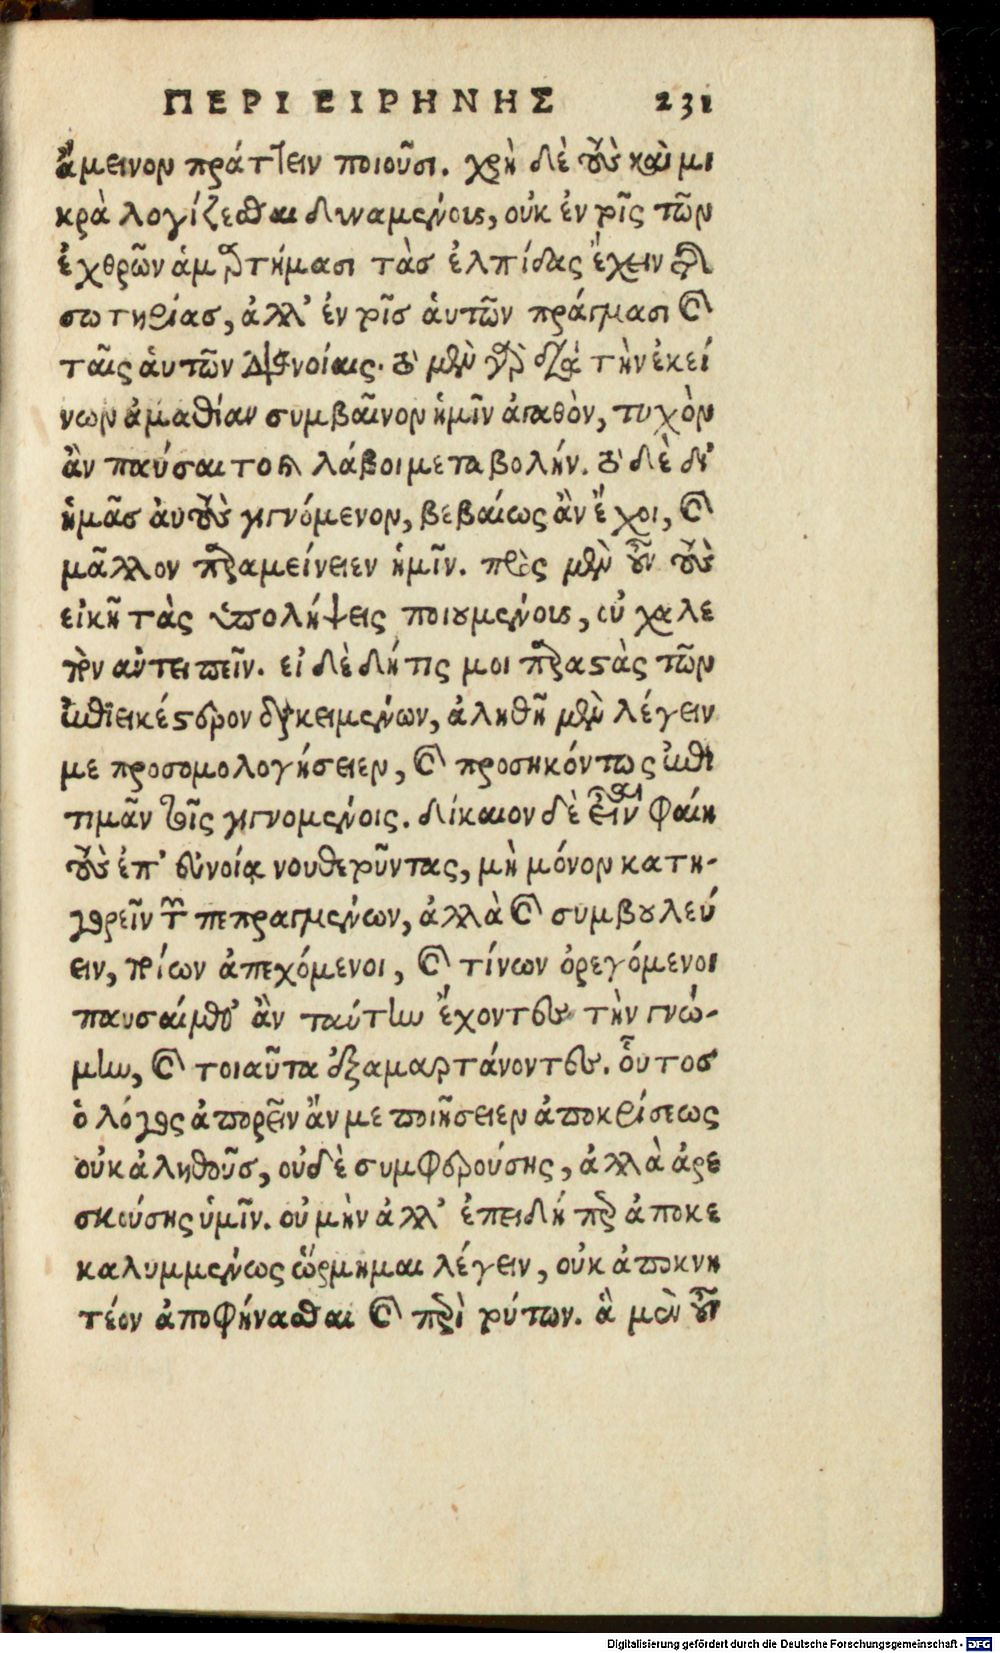 ΠΕΡΙ ΕΙΡΗΝΗΣ 231
ἄμεινον πράττειν ποιοῦσι. χρὴ δὲ τοὺς καὶ μι
κρὰ λογίζεσθαι δυναμένους, οὐκ ἐν τοῖς τῶν
ἐχθρῶν ἁμαρτήμασι τὰς ἐλπίδας ἔχειν τῆς
σωτηρίας, ἀλλ' ἐν τοῖς ἁυτῶν πράγμασι καὶ
ταῖς ἁυτῶν διανοίαις. τὸ μὲν γὰρ διὰ τὴν ἐκεί
νων ἀμαθίαν συμβαῖνον ἡμῖν ἀγαθὸν, τυχὸν
ἂν παύσαιτο καὶ λάβοι μεταβολήν. τὸ δὲ δι'
ἡμᾶς ἀυτοὺς γιγνόμενον, βεβαίως ἂν ἔχοι, καὶ
μᾶλλον παραμείνειεν ἡμῖν. πρὸς μὲν οὖν τοὺς
εἰκῆ τὰς ὑπολήψεις ποιουμένους, οὐ χαλε
πὸν ἀντειπεῖν. εἰ δὲ δή τις μοι παραστὰς τῶν
ἐπιεικέστερον διακειμένων, ἀληθῆ μὲν λέγειν
με προσομολογήσειεν, καὶ προσηκόντως ἐπι
τιμᾶν τοῖς γιγνομένοις. δίκαιον δὲ εἶναι φαίη
τοὺς ἐπ' εὐνοίᾳ νουθετοῦντας, μὴ μόνον κατη-
γορεῖν τῶν πεπραγμένων, ἀλλὰ καὶ συμβουλεύ
ειν, τίνων ἀπεχόμενοι, καὶ τίνων ὀρεγόμενοι
παυσαίμεθ' ἂν ταύτην ἔχοντες τὴν γνώ-
μην, καὶ τοιαῦτα ἐξαμαρτάνοντες. οὗτος
ὁ λόγος ἀπορεῖν ἄν με ποιήσειεν ἀποκρίσεως
οὐκ ἀληθοῦς, οὐδὲ συμφερούσης, ἀλλὰ ἀρε
σκούσης ὑμῖν. οὐ μὴν ἀλλ' ἐπειδή περ ἀποκε
καλυμμένως ὥρμημαι λέγειν, οὐκ ἀποκνη
τέον ἀποφήνασθαι καὶ περὶ τούτων. ἃ μὲν οὖν
Digitalisierung gefördert durch die Deutsche Forschungsgemeinschaft - DFG